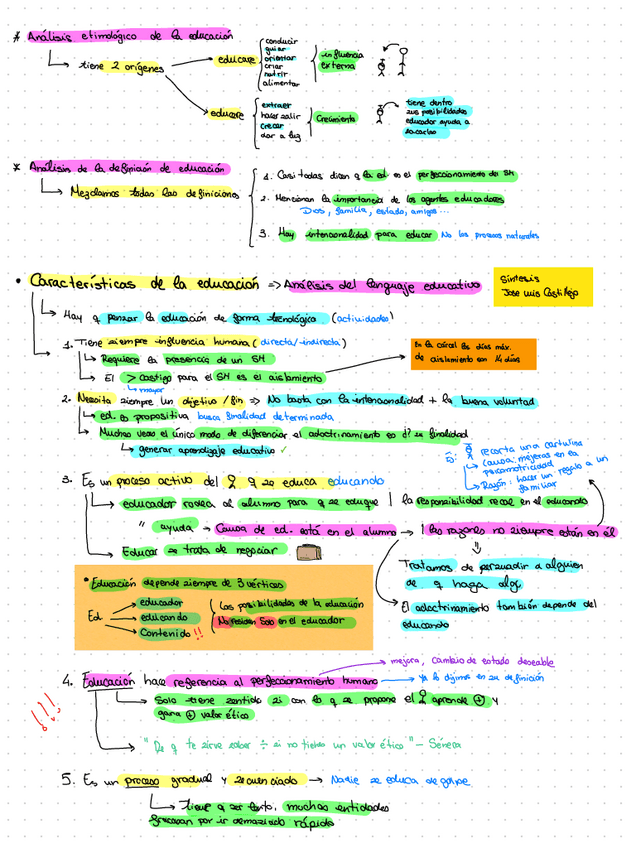 * Análisis etimológico de la educación
tiene 2 orígenes
educare
conducir
guiar
orientar
criar
nutrir
alimentar
influencia
externa
educere
extraer
hacer salir
crecer
dar a luz
Crecimiento
tiene dentro
sus posibilidades
educador ayuda a
sacarlas
* Análisis de la definición de educación
Mezclamos todas las definiciones
1. Casi todas dicen q la ed. es el perfeccionamiento del SH
2. Mencionan la importancia de los agentes educadores
Dios, familia, estado, amigos...
3. Hay intencionalidad para educar No los procesos naturales
• Características de la educación => Análisis del lenguaje educativo
Síntesis
Jose Luis Castillejo
Hay q pensar la educación de forma tecnológica (actividades)
1. Tiene siempre influencia humana (directa/indirecta)
Requiere la presencia de un SH
El > castigo para el SH es el aislamiento
mayor
En la cárcel los días máx.
de aislamiento son 14 días
2. Necesita siempre un objetivo / fin => No basta con la intencionalidad + la buena voluntad
ed. es propositiva busca finalidad determinada
Muchas veces el único modo de diferenciar el adoctrinamiento es su finalidad
generar aprendizaje educativo ✓
recorta una cartulina
Causa: mejoras en la
psicomotricidad
Razón: hacer un regalo a un
familiar
3. Es un proceso activo del q se educa educando
educador rodea al alumno para q se eduque | la responsabilidad recae en el educando
" ayuda → Causa de ed. está en el alumno → las razones no siempre están en él
Educar se trata de negociar
Tratamos de persuadir a alguien
de q haga algo
El adoctrinamiento también depende del
educando
• Educación depende siempre de 3 vértices
Ed
educador
educando
Contenido !!
Las posibilidades de la educación
No residen Solo en el educador
4. Educación hace referencia al perfeccionamiento humano
mejora, cambio de estado deseable
Ya lo dijimos en su definición
!!!
Solo tiene sentido si con lo q se propone el aprende + y
gana + valor ético
"De q te sirve saber ÷ si no tienes un valor ético" – Séneca
5. Es un proceso gradual y secuenciado → Nadie se educa de golpe
Tiene q ser lento, muchas entidades
fracasan por ir demasiado rápido